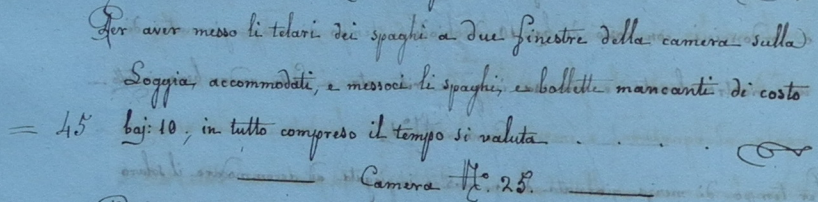 Per aver messo li telari dei spaghi a due finestre della camera sulla
Loggia, accommodati, e messoci li spaghi, e bollette mancanti di costo
= 45 baj: 10, in tutto compreso il tempo si valuta . . . .
Camera N.º 25.